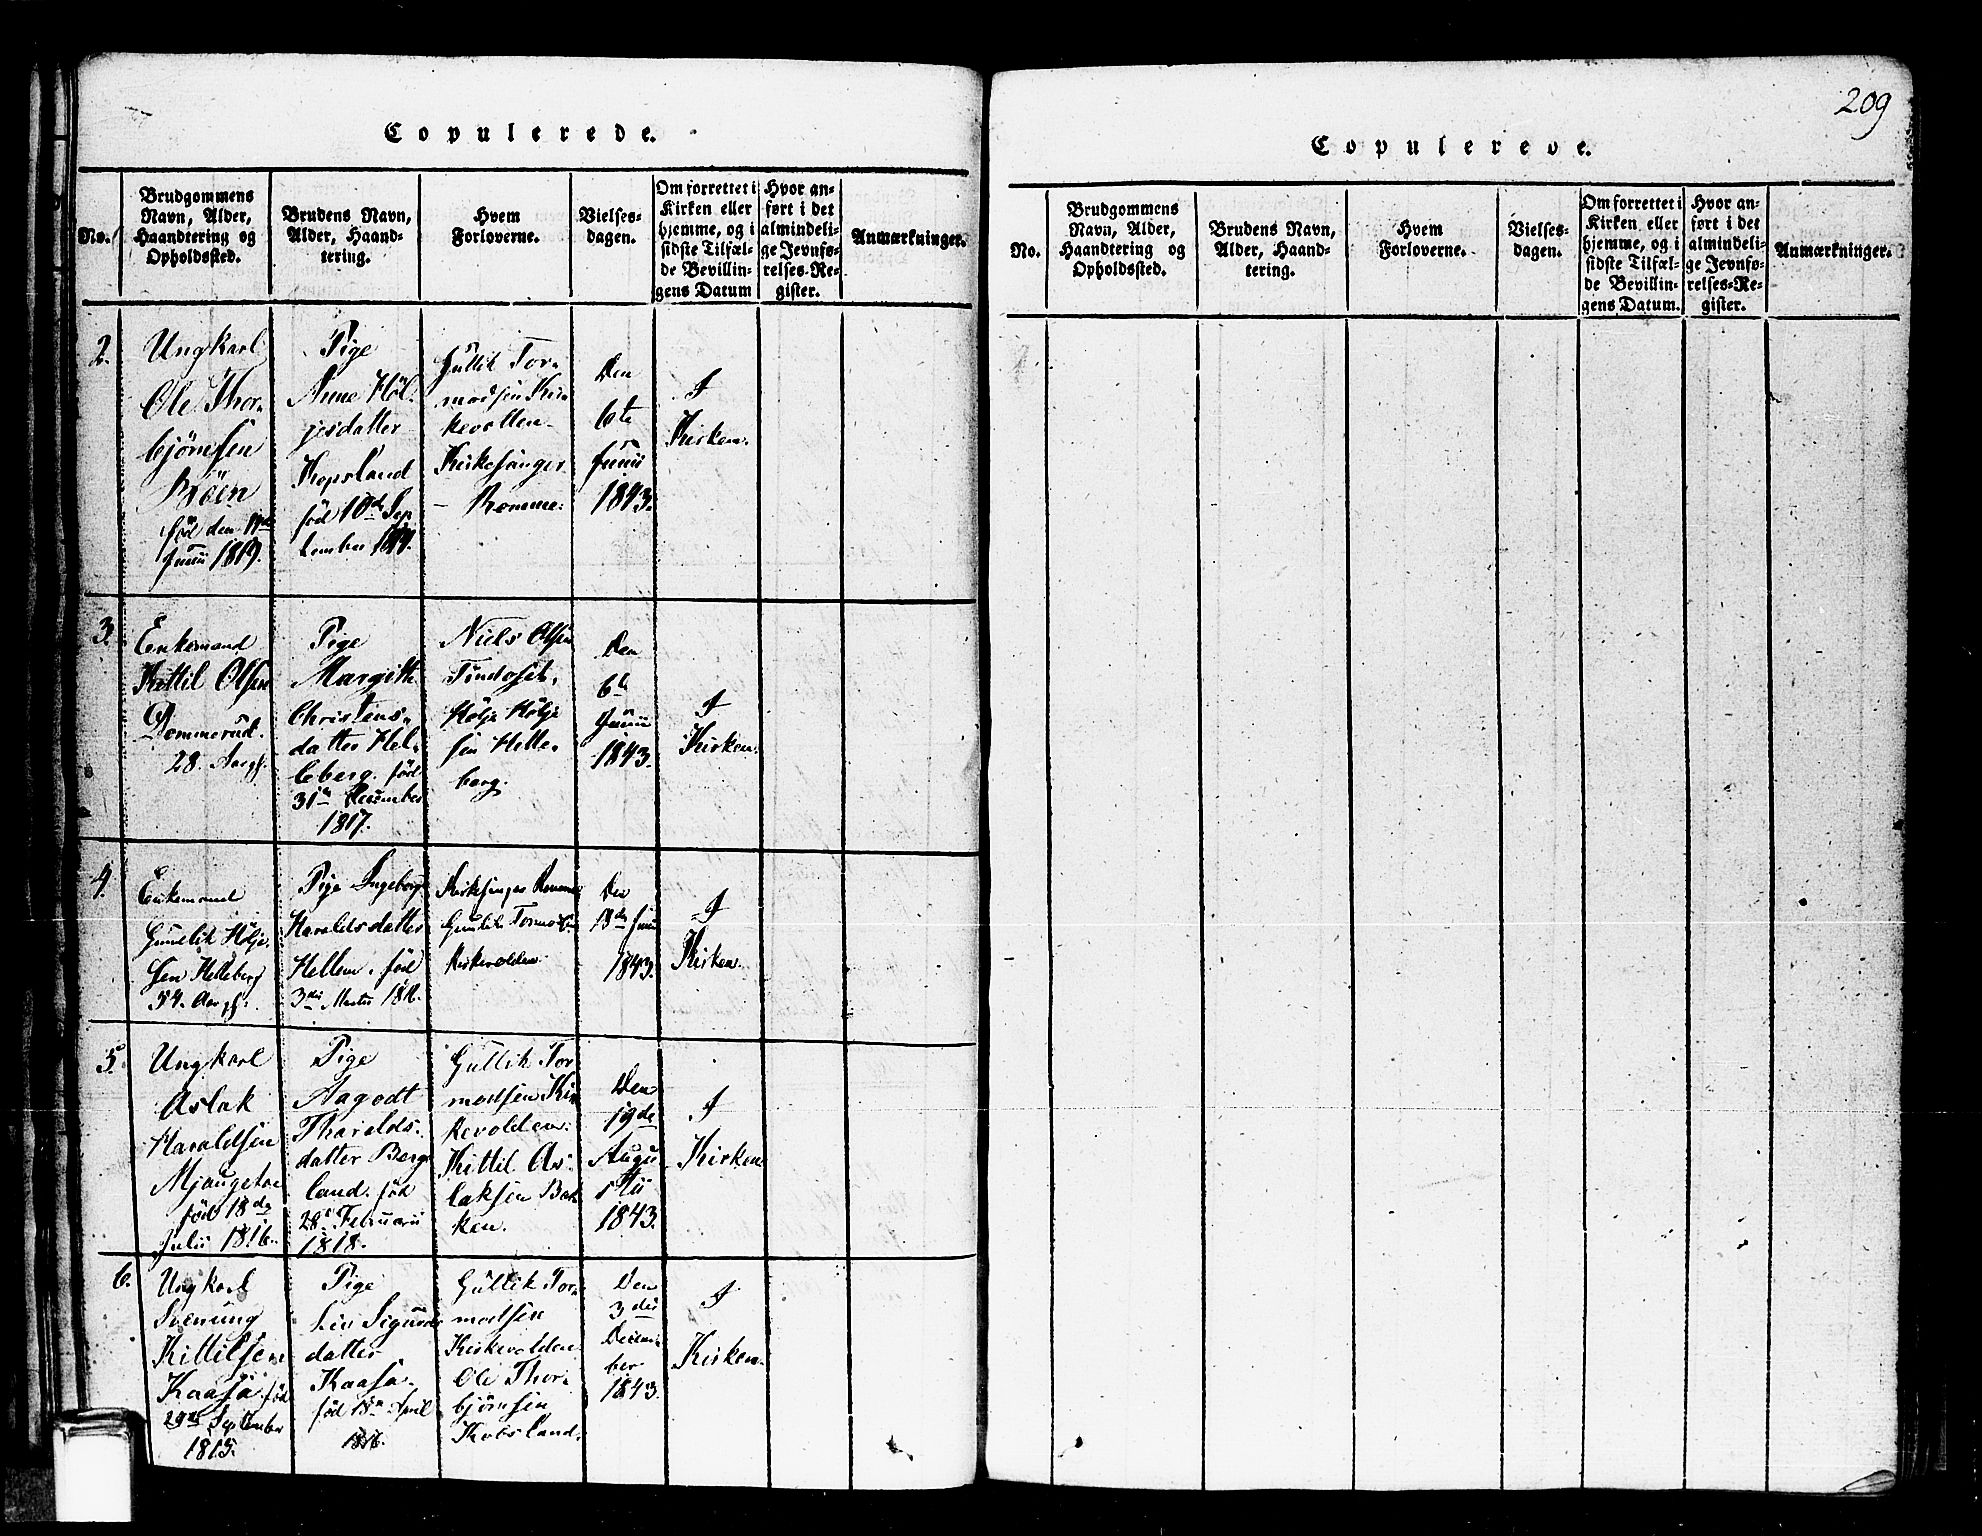 209
Copulerede.
No.
Brudgommens
Navn, Alder,
Haandtering og
Opholdssted.
Brudens Navn,
Alder, Haand-
tering.
Hvem
Forloverne.
Vielses-
dagen.
Om forrettet i
Kirken eller
hjemme, og i
sidste Tilfæl-
de Bevillin-
gens Datum
Hvor an-
ført i det
almindeli-
ge Jevnfø-
relses-Re-
gister.
Anmærkninger.
2.
Ungkarl
Ole Thor-
bjørnsen
Bøen
fød den
Junii 1819.
Pige
Anne Høl-
jesdatter
Kopsland
fød 10de Sep
tember
Gullik Tor-
modsen Kir-
kevolten
Kirkesanger
- Romme.
Den
6te
Junii
1843.
I
Kirken.
3.
Enkemand
Kittil Olsen
Dommerud.
28. Aargl.
Pige
Margith
Christens-
datter Hel-
leberg. fød
31te December
1817.
Niels Olsen
Tindoset,
Hølje Hølje
sen Helle-
berg.
Den
6te
Junii
1843.
I
Kirken.
4.
Enkemand
Gunelik Hølje-
sen Helleberg
54. Aargl.
Pige Ingeborg
Haraldsdatter
Hellem. fød
3die Martii
Kirkesanger Romme
Gunlik Tormodsen
Kirkevolden.
Den
18de Junii
1843.
I
Kirken.
5.
Ungkarl
Aslak
Haraldsen
Mjaugetoe
fød 18de
Julii 1816.
Pige
Aagodt
Tharalds-
datter Berge
land. fød
28de Februarii
1818.
Gullik Tor
modsen Kir
kevolden.
Kittil As-
laksen Bak
ken.
Den
19de
Augu
stii
1843.
I
Kirken
6.
Ungkarl
Svenung
Kittilsen
Kaasa fød
29de September
1815.
Pige
Liv Sigurds
datter
Kaasa.
fød 18de April
1816.
Gullik Tor-
modsen
Kirkevolden
Ole Thor-
bjørnsen
Kobsland.
Den
3die
Decem-
ber
1843.
I
Kirken.
Copulerede.
No.
Brudgommens
Navn, Alder,
Haandtering og
Opholdssted.
Brudens Navn,
Alder, Haand-
tering.
Hvem
Forloverne.
Vielses-
dagen.
Om forrettet i
Kirken eller
hjemme, og i
sidste Tilfæl-
de Bevillin-
gens Datum.
Hvor an-
ført i det
almindeli-
ge Jevnfø-
relses-Re-
gister.
Anmærkninger.